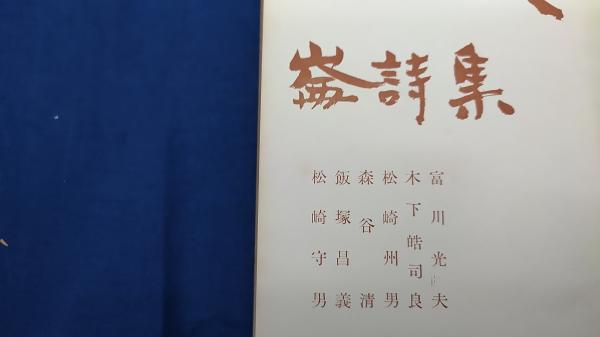 崙詩集
富川光夫
木下皓司良
松崎州男
森谷清
飯塚昌義
松崎守男